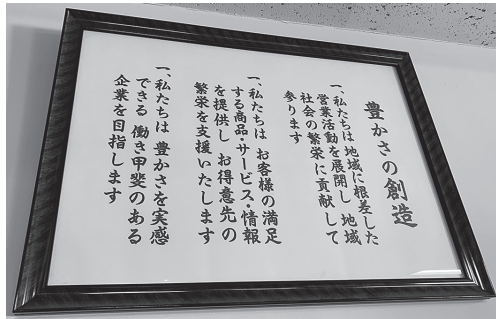 豊かさの創造
一、私たちは地域に根差した
営業活動を展開し 地域
社会の繁栄に貢献して
参ります
一、私たちは お客様の満足
する商品・サービス・情報
を提供し お得意先の
繁栄を支援いたします
一、私たちは 豊かさを実感
できる 働き甲斐のある
企業を目指します